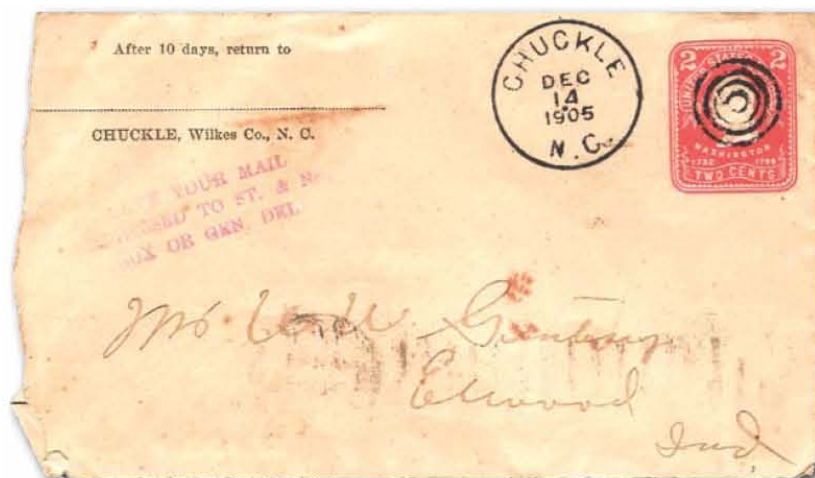 After 10 days, return to
CHUCKLE, Wilkes Co., N. C.
CHUCKLE
DEC
14
1905
N. C.
2 2
UNITED STATES
WASHINGTON
1732 1799
TWO CENTS
YOUR MAIL
TO ST. & No.
BOX OR GEN. DEL.
Elwood
Ind